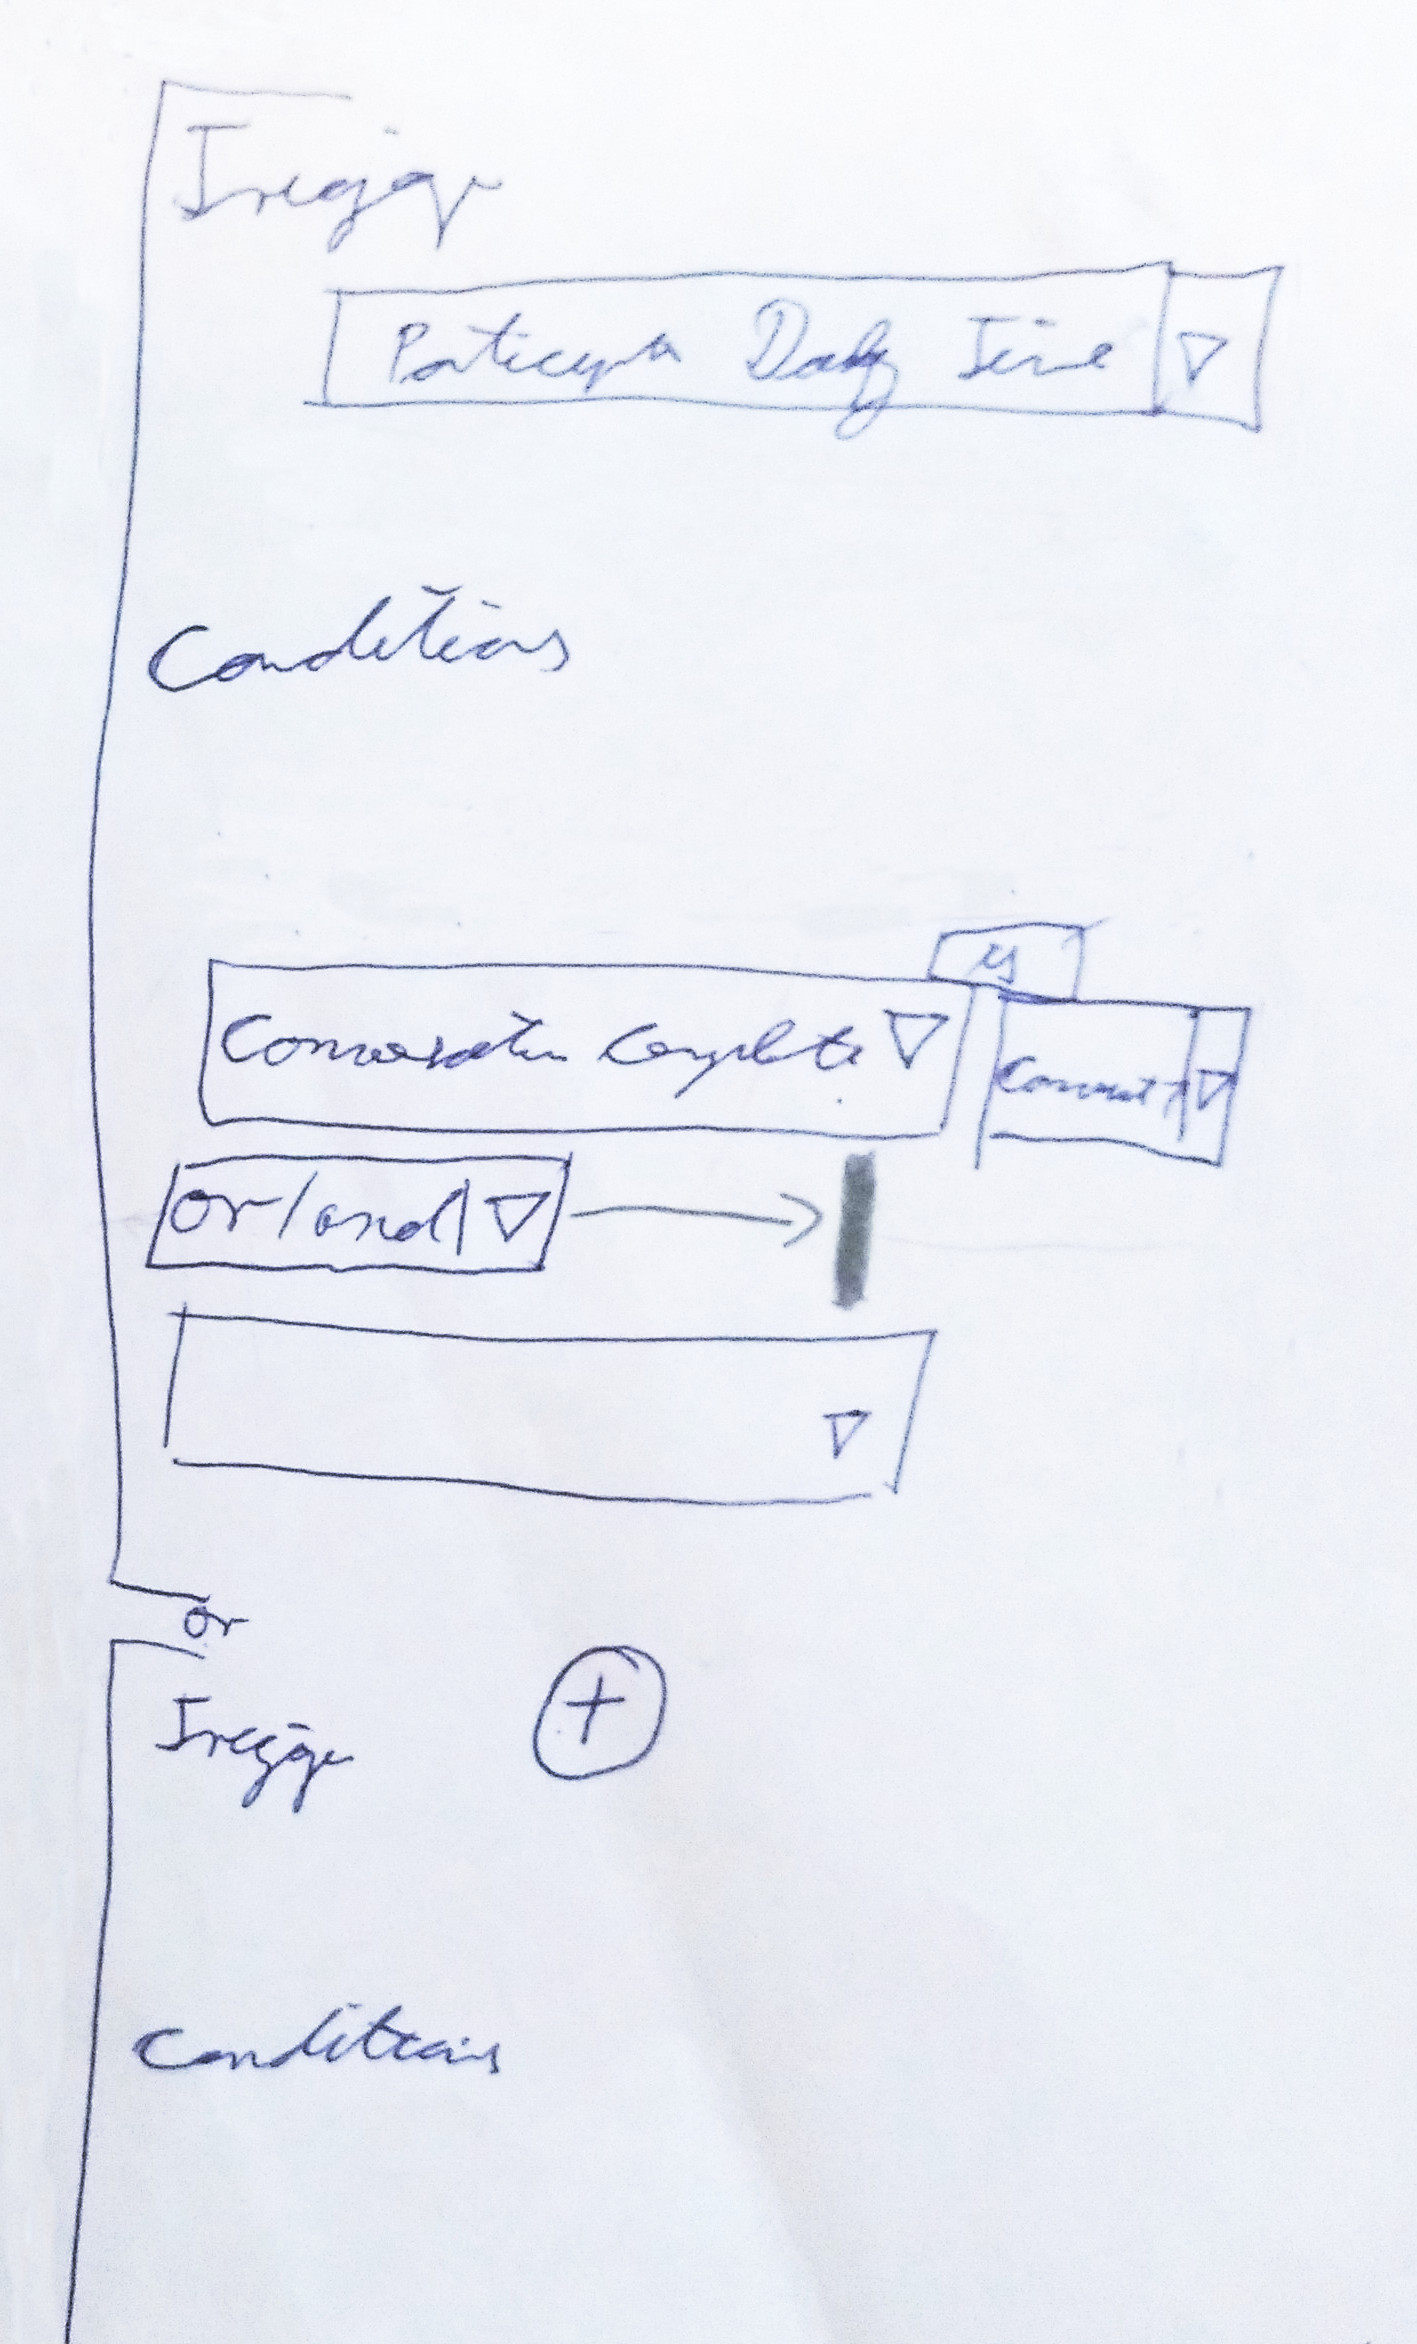 Trigger
Participant Daily Time
Conditions
is
Conversation Complete
or/and
or
Trigger
+
Conditions